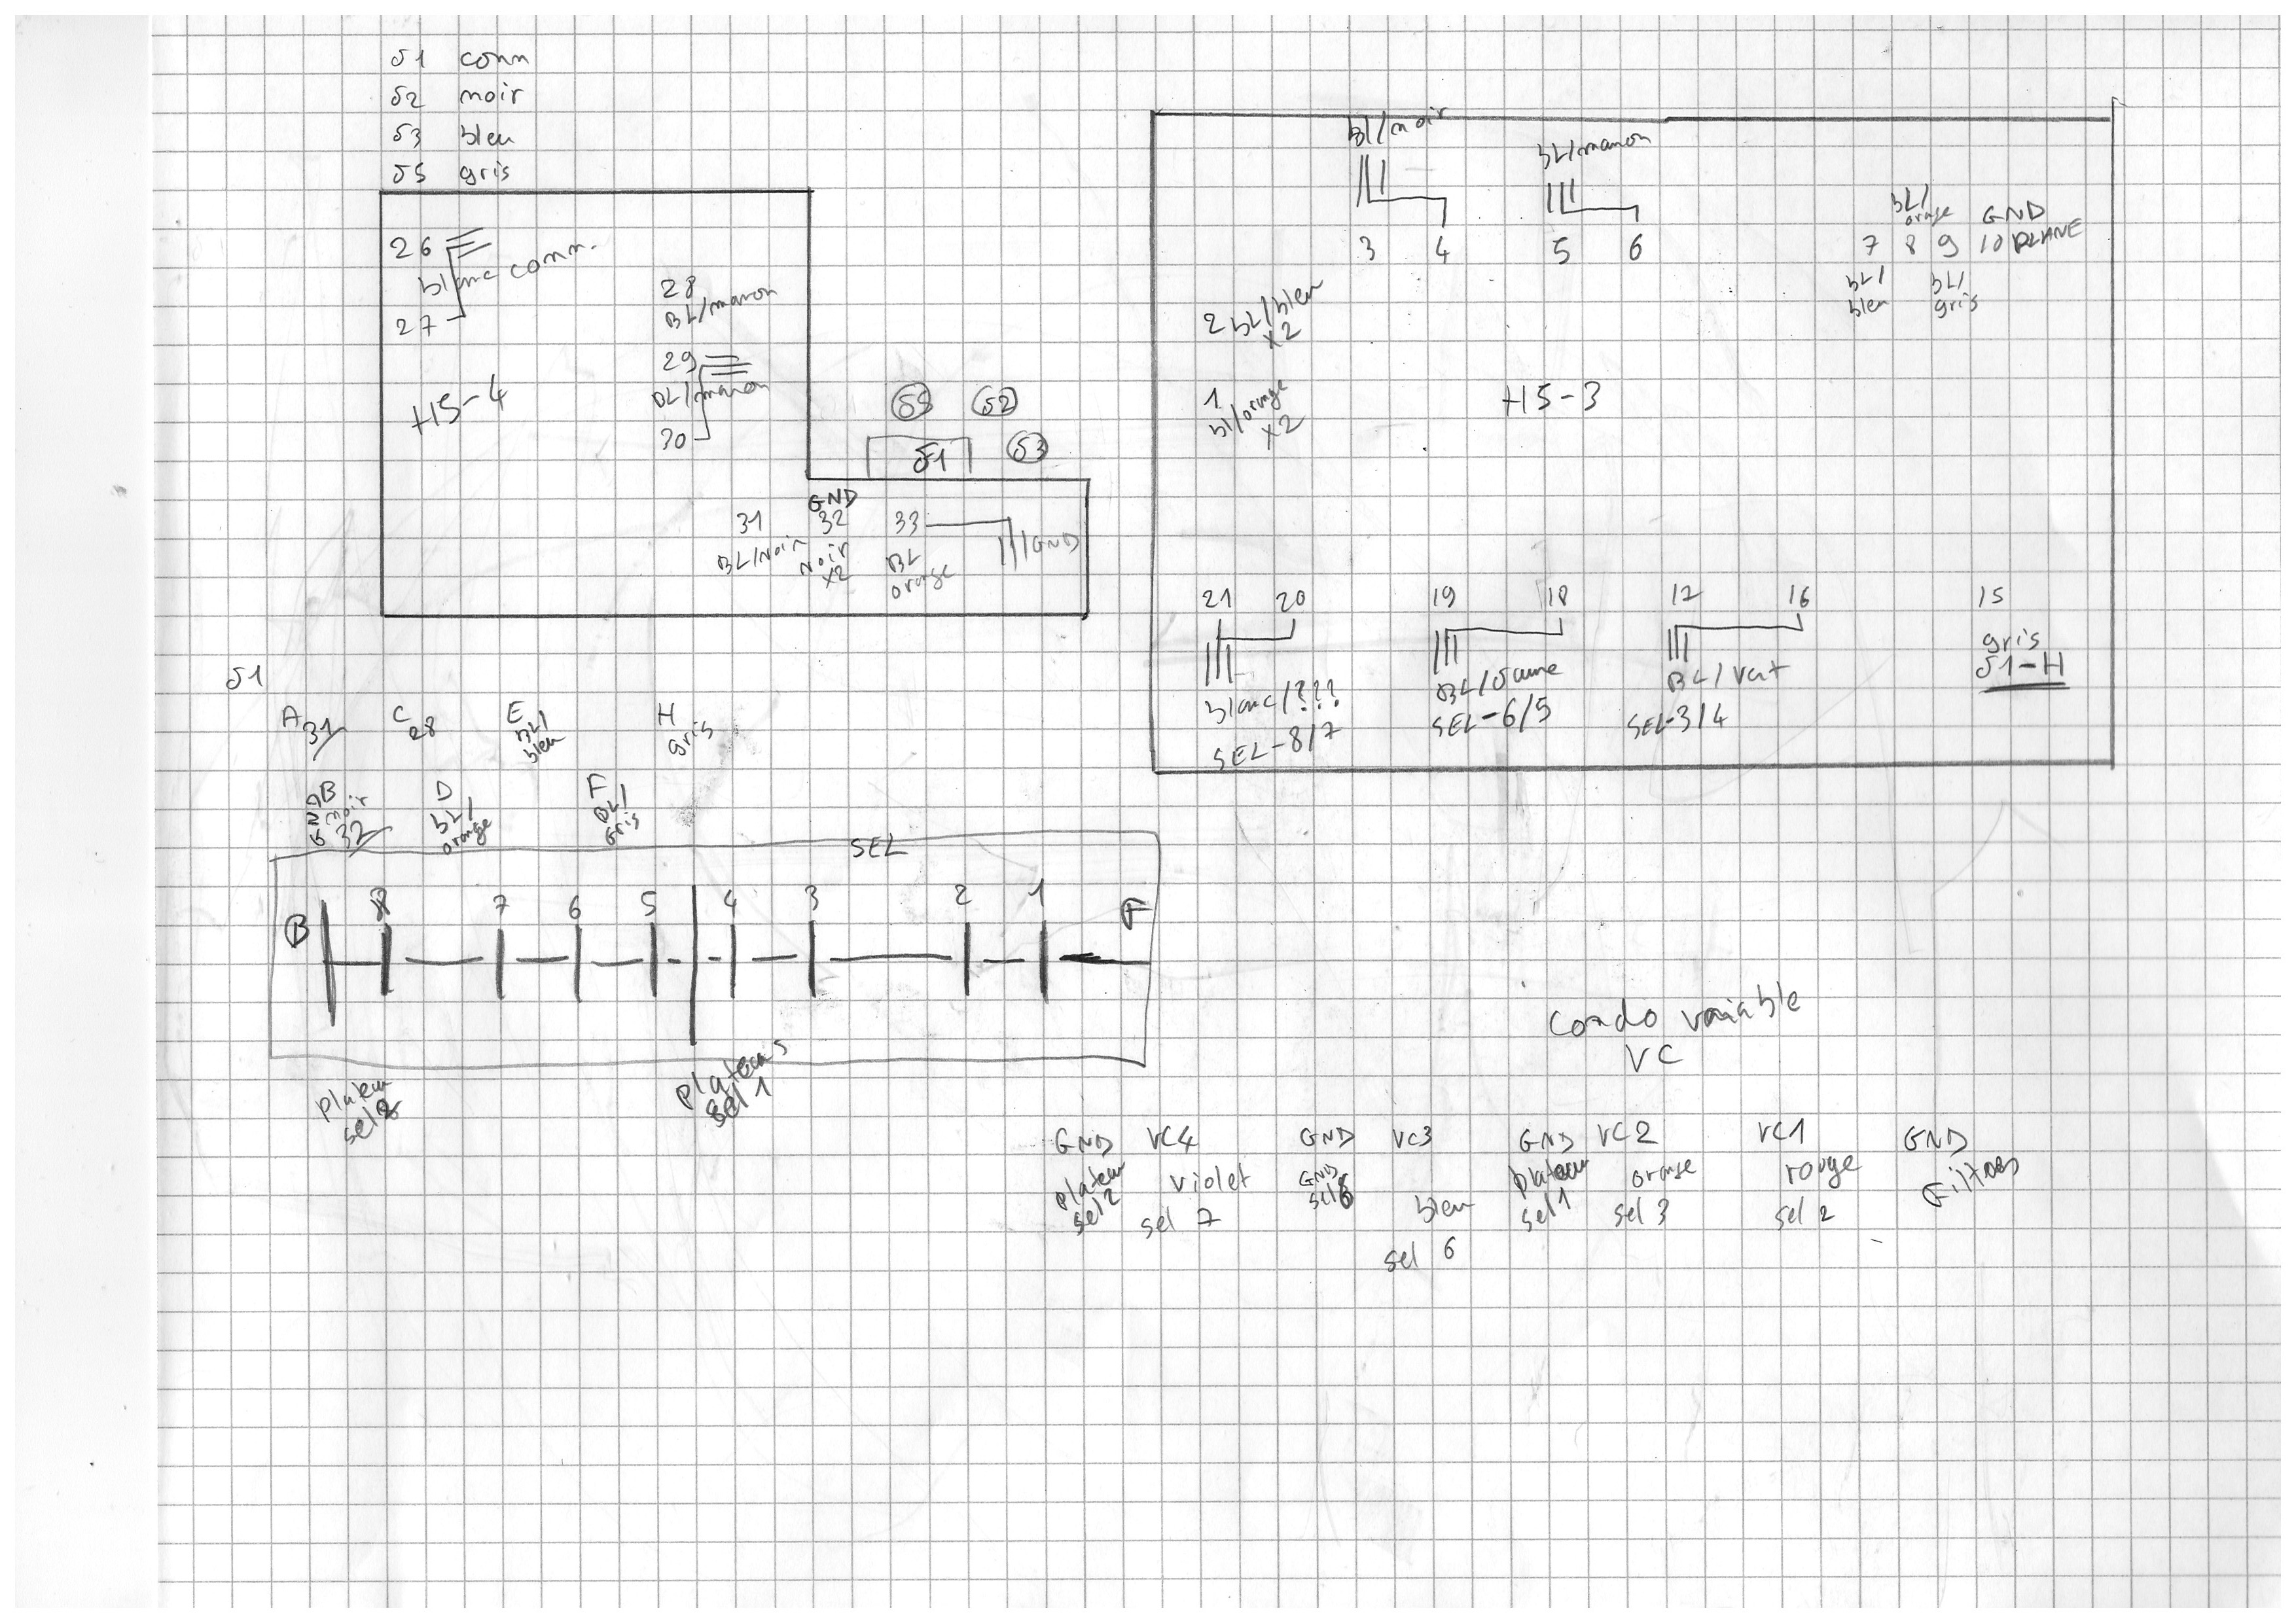 J1 conn
J2 noir
J3 bleu
J5 gris
26
blanc conn.
27
28
BL/maron
29
BL/maron
30
H5-4
J5
J2
J1
J3
GND
31
32
33
BL/Noir
Noir
x2
BL
orange
GND
bl/noir
3
4
bL/maron
5
6
bL/
orange
GND
7
8
9
10 PLANE
bL/
bleu
bL/
gris
2 bL/bleu
x2
1
bl/orange
x2
H5-3
21
20
blanc/???
SEL-8/7
19
18
BL/Jaune
SEL-6/5
17
16
BL/Vert
SEL-3/4
15
gris
J1-H
J1
A
31
C
28
E
BL/
bleu
H
gris
B
GND
noir
32
D
bL/
orange
F
BL/
Gris
SEL
B
8
7
6
5
4
3
2
1
F
plateau
sel 2
plateau
sel 1
Condo variable
VC
GND
plateau
sel 2
VC4
violet
sel 7
GND
GND
VC3
bleu
sel 6
GND
plateau
sel 1
VC2
orange
sel 3
VC1
rouge
sel 2
GND
Filtres